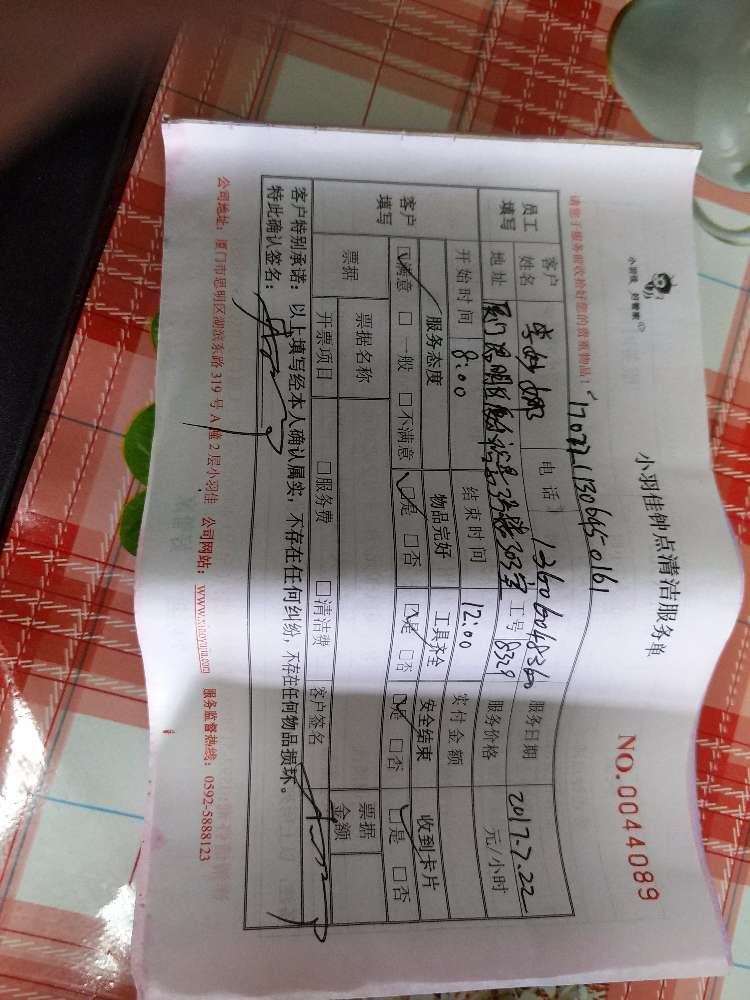 小羽佳 好管家
小羽佳钟点清洁服务单
NO.0044089
请您于服务前收拾好您的贵重物品!
1702211306450161
员工填写 客户姓名 电话 13606048360 服务日期 2017.7.22
地址 工号 8329 服务价格 元/小时
开始时间 8:00 结束时间 12:00 实付金额
客户填写 服务态度 物品完好 工具齐全 安全结束 收到卡片
☑满意 □一般 □不满意 ☑是 □否 ☑是 □否 ☑是 □否 ☑是 □否
票据 票据名称 票据金额
开票项目 □服务费 □清洁费 客户签名
客户特别承诺:以上填写经本人确认属实,不存在任何纠纷,不存在任何物品损坏。
特此确认签名:
公司地址:厦门市思明区湖滨东路319号A幢2层小羽佳 公司网站:www.xiaoyujia.com 服务监督热线:0592-5888123